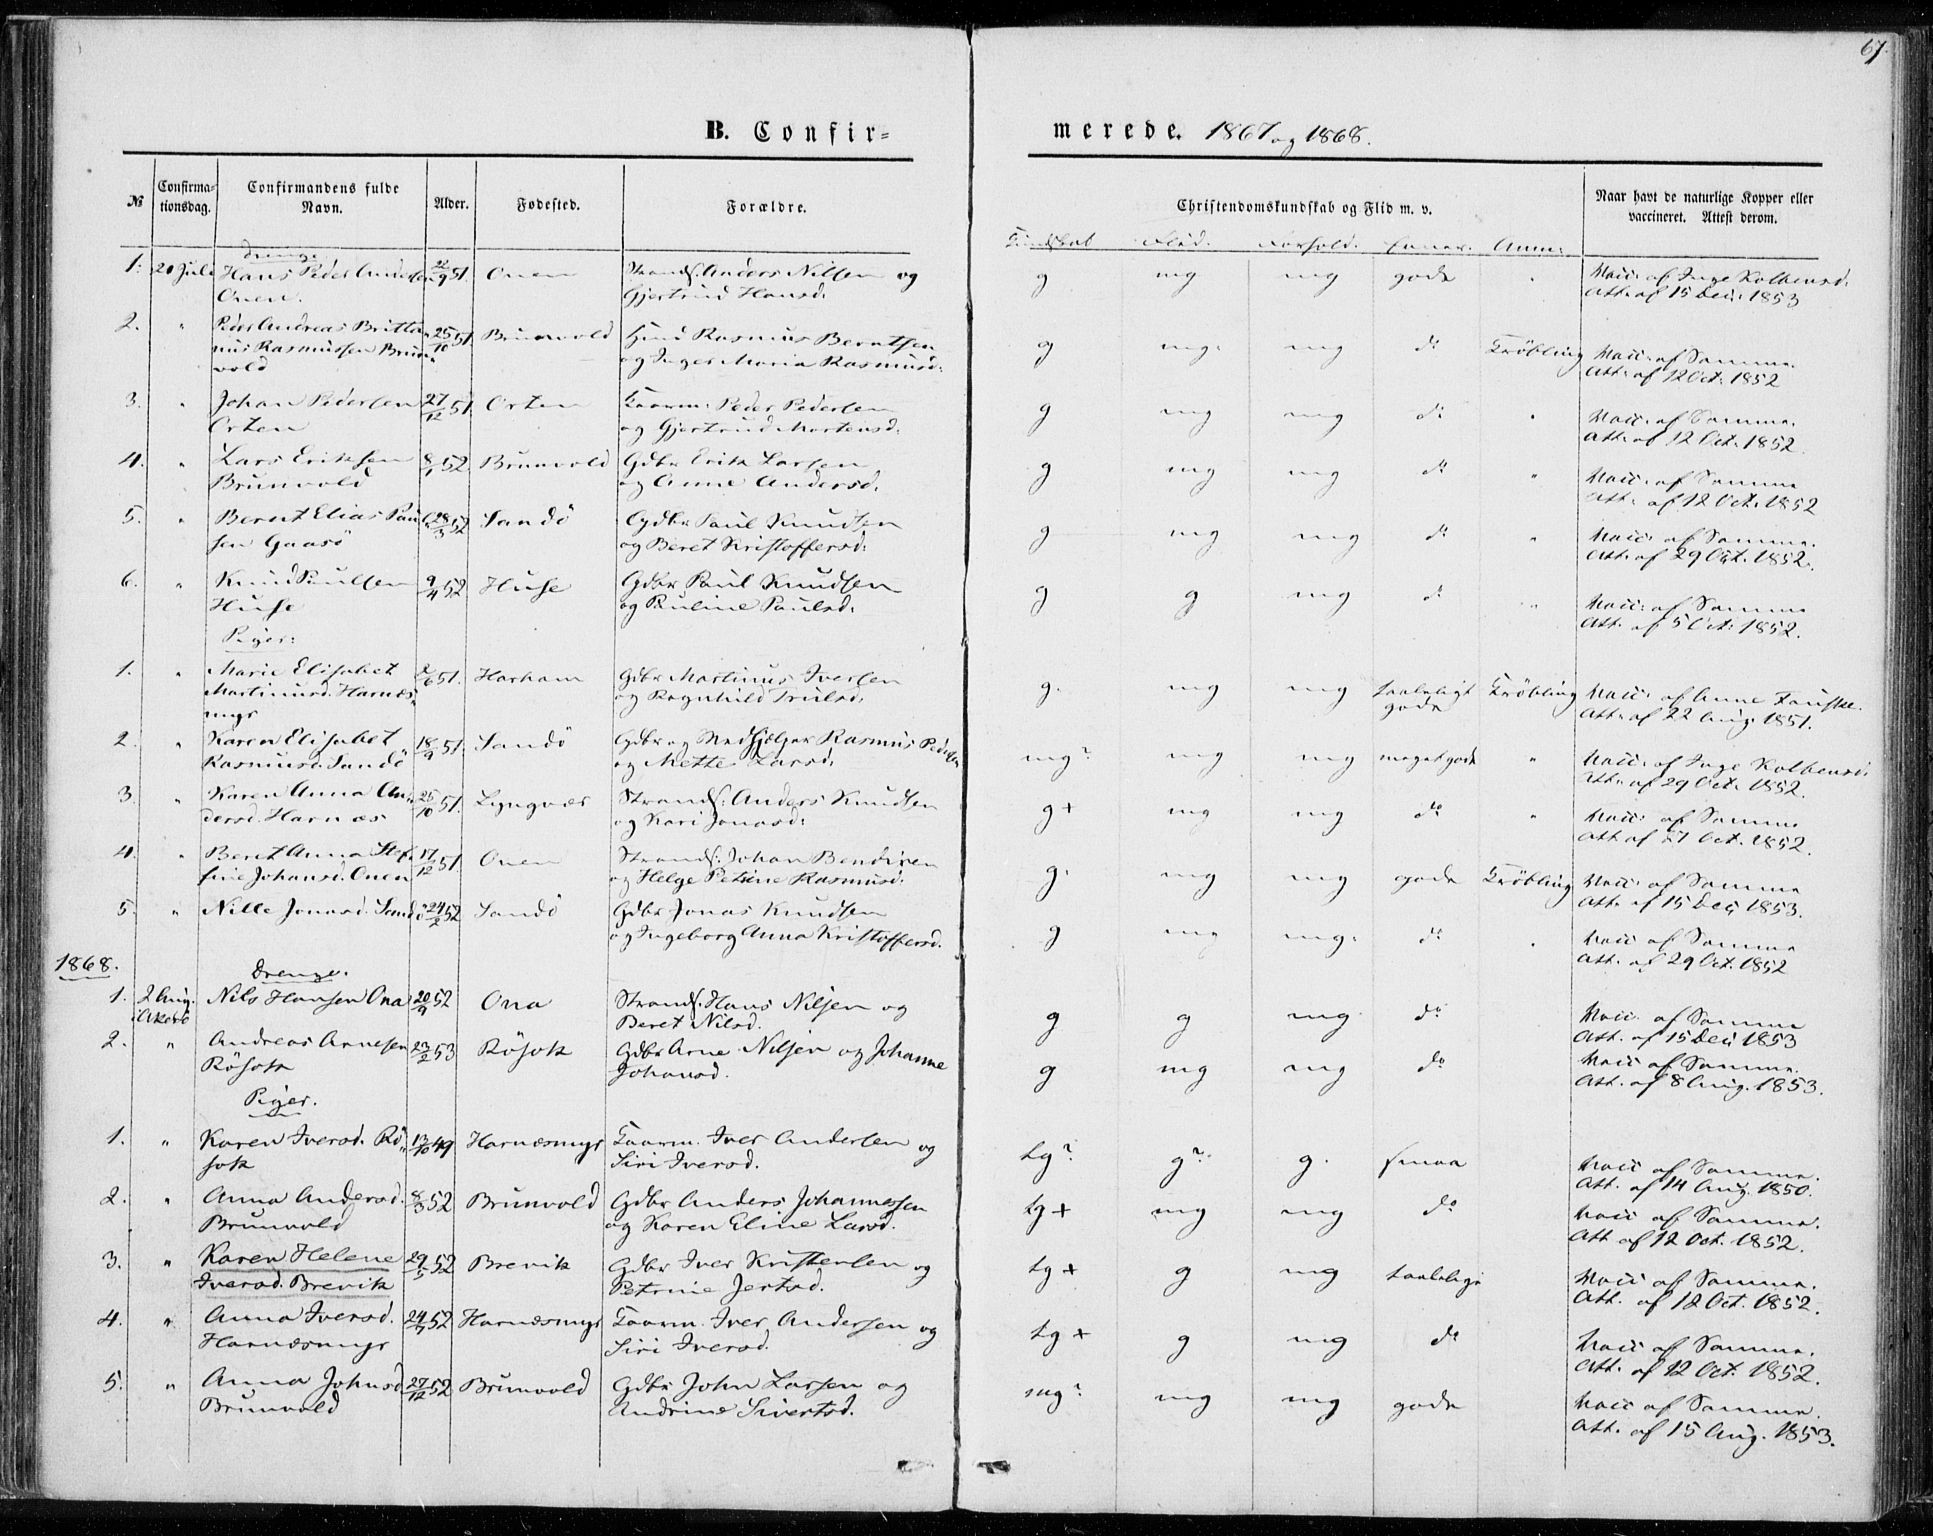 67.
B. Confir- merede. 1867 og 1868.
No Confirma-tionsdag. Confirmandens fulde Navn. Alder. Fødested. Forældre. Christendomskundskab og Flid m. v. Naar havt de naturlige Kopper eller vaccineret. Attest derom.
Kundskab Flid. Forhold. Evner. Anm:
Drenge
1. 20 Juli Hans Peder Andersen 9 51. Onen Strands. Anders Nilsen og g mg mg gode " Vacc. af Inge Kolbensd.
Onen. Gjertrud Hansd. Att. af 15 Dec. 1853
2. " Peder Andreas Britta- 25/10 51. Brunvold Rasmus Berntsen g mg. mg do Tvöbling Vacc. af Samme.
nus Rasmussen Brun- og Inger Maria Rasmusd. Att. af 12 Oct. 1852
vold
3. " Johan Pedersen 27/12 51. Orten Peder Pedersen g mg mg do " Vacc. af Samme.
Orten og Gjertrud Mortensd. Att. af 12 Oct. 1852.
4. " Lars Eriksen 8/1 52. Brunvold Gdbr Erik Larsen g mg mg do " Vacc. af Samme
Brunvold og Anne Andersd. Att. af 12 Oct. 1852
5. " Bernt Elias Paul- 28/3 52 Sandö Gdbr Paul Knudsen g mg mg do " Vacc. af Samme.
sen Gaasö og Beret Kristoffersd. Att. af 29 Oct. 1852.
6. " Knud Paulsen 9/4 52 Huse Gdbr Paul Knudsen g g mg do " Vacc. af Samme
Huse og Pauline Paulsd. Att. af 5 Oct. 1852.
Piger:
1. " Marie Elisabet 2/6 51. Harham Gdbr Martinus Iversen g. mg mg taaleligt Tvöbling Vacc. af Anne Fauske.
Martinusd. Harnæs- og Ragnhild Trulsd. gode Att. af 22 Aug. 1851.
myr
2. " Karen Elisabet 18/9 51. Sandö Gdbr og Medhjelper Rasmus Pedersen mg? mg mg meget gode " Vacc. af Inge Kolbensd.
Rasmusd. Sandö og Mette Larsd. Att. af 29 Oct. 1852.
3. " Karen Anna An- 25/10 51. Lyngvær Strands. Anders Knudsen g+ mg mg do " Vacc. af Samme
dersd. Harnæs og Kari Jonasd. Att af 27 Oct. 1852.
4. " Beret Anna Stef- 17/12 51 Onen Strands. Johan Bendixen g. mg mg gode Tvöbling Vacc. af Samme
fine Johansd. Onen og Helge Petrine Rasmusd. Att. af 15 Dec. 1853.
5. " Nille Jonasd. Sandö 24/2 52 Sandö Gdbr Jonas Knudsen g mg mg. do . Vacc af Samme
og Ingeborg Anna Kristoffersd. Att. af 29 Oct. 1852
1868. Drenge.
1. 2 Aug. Nils Hansen Ona 20/9 52 Ona Strands. Hans Nilsen og g g mg do Vacc. af Samme
i Akerö Beret Nilsd. Att. af 15 Dec 1853
2. " Andreas Arnesen 23/2 53 Rösok Gdbr Arne Nilsen og Johanne g mg mg do Vacc af Samme.
Rösok Johansd. Att. af 8 Aug. 1853.
Piger.
1. " Karen Iversd. Rö- 13/10 49 Harnæsmyr Iver Andersen og tg? g? g. smaa Vacc af Samme.
sok Siri Iversd. Att. af 14 Aug. 1850.
2. " Anna Andersd. 8/3 52 Brunvold Gdbr Anders Johannessen tg+ mg mg do Vacc af Samme.
Brunvold og Karen Eline Larsd. Att af 12 Oct. 1852.
3. " Karen Helene 29/5 52 Brevik Gdbr Iver Kristensen og tg+ g mg taalelige Vacc af Samme.
Iversd. Brevik Petrine Jertsd. Att. af 12 Oct. 1852.
4. " Anna Iversd. 24 52 Harnæsmyr Iver Andersen og tg+ g mg do Vacc af Samme.
Harnæsmyr Siri Iversd. Att. af 12 Oct. 1852.
5. " Anna Johnsd. 27/12 52 Brunvold Gdbr John Larsen og mg? mg mg gode Vacc af Samme.
Brunvold Andrine Sivertsd. Att. af 15 Aug. 1853.